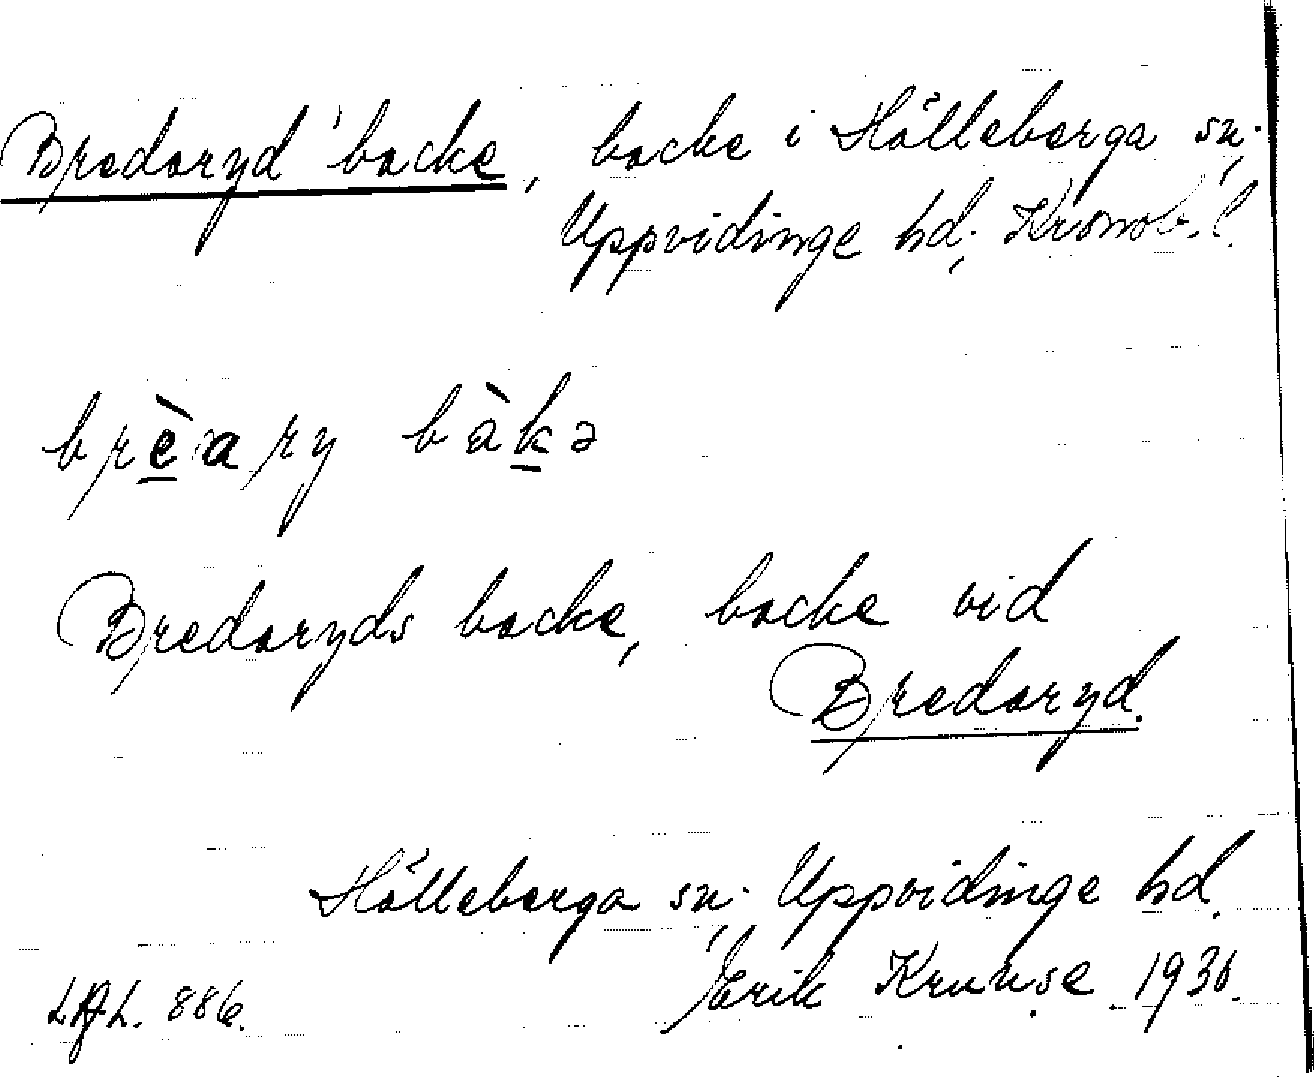 Bredaryd backe, backe i Hälleberga sn.,
Uppvidinge hd., Kronob. l.
brèary bàkə
Bredaryds backe, backe vid
Bredaryd.
Hälleberga sn., Uppvidinge hd.
Erik Kruuse 1930.
LAL. 886.